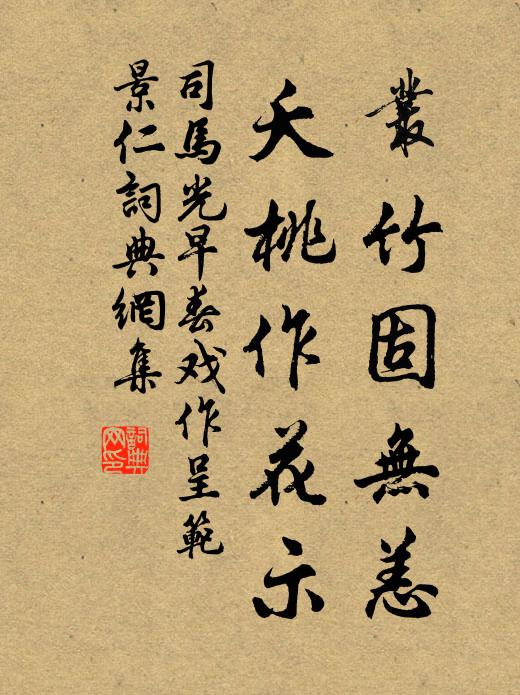 叢竹固無恙
夭桃作花示
司馬光早春戏作呈範
景仁詞典網集
詞典网印